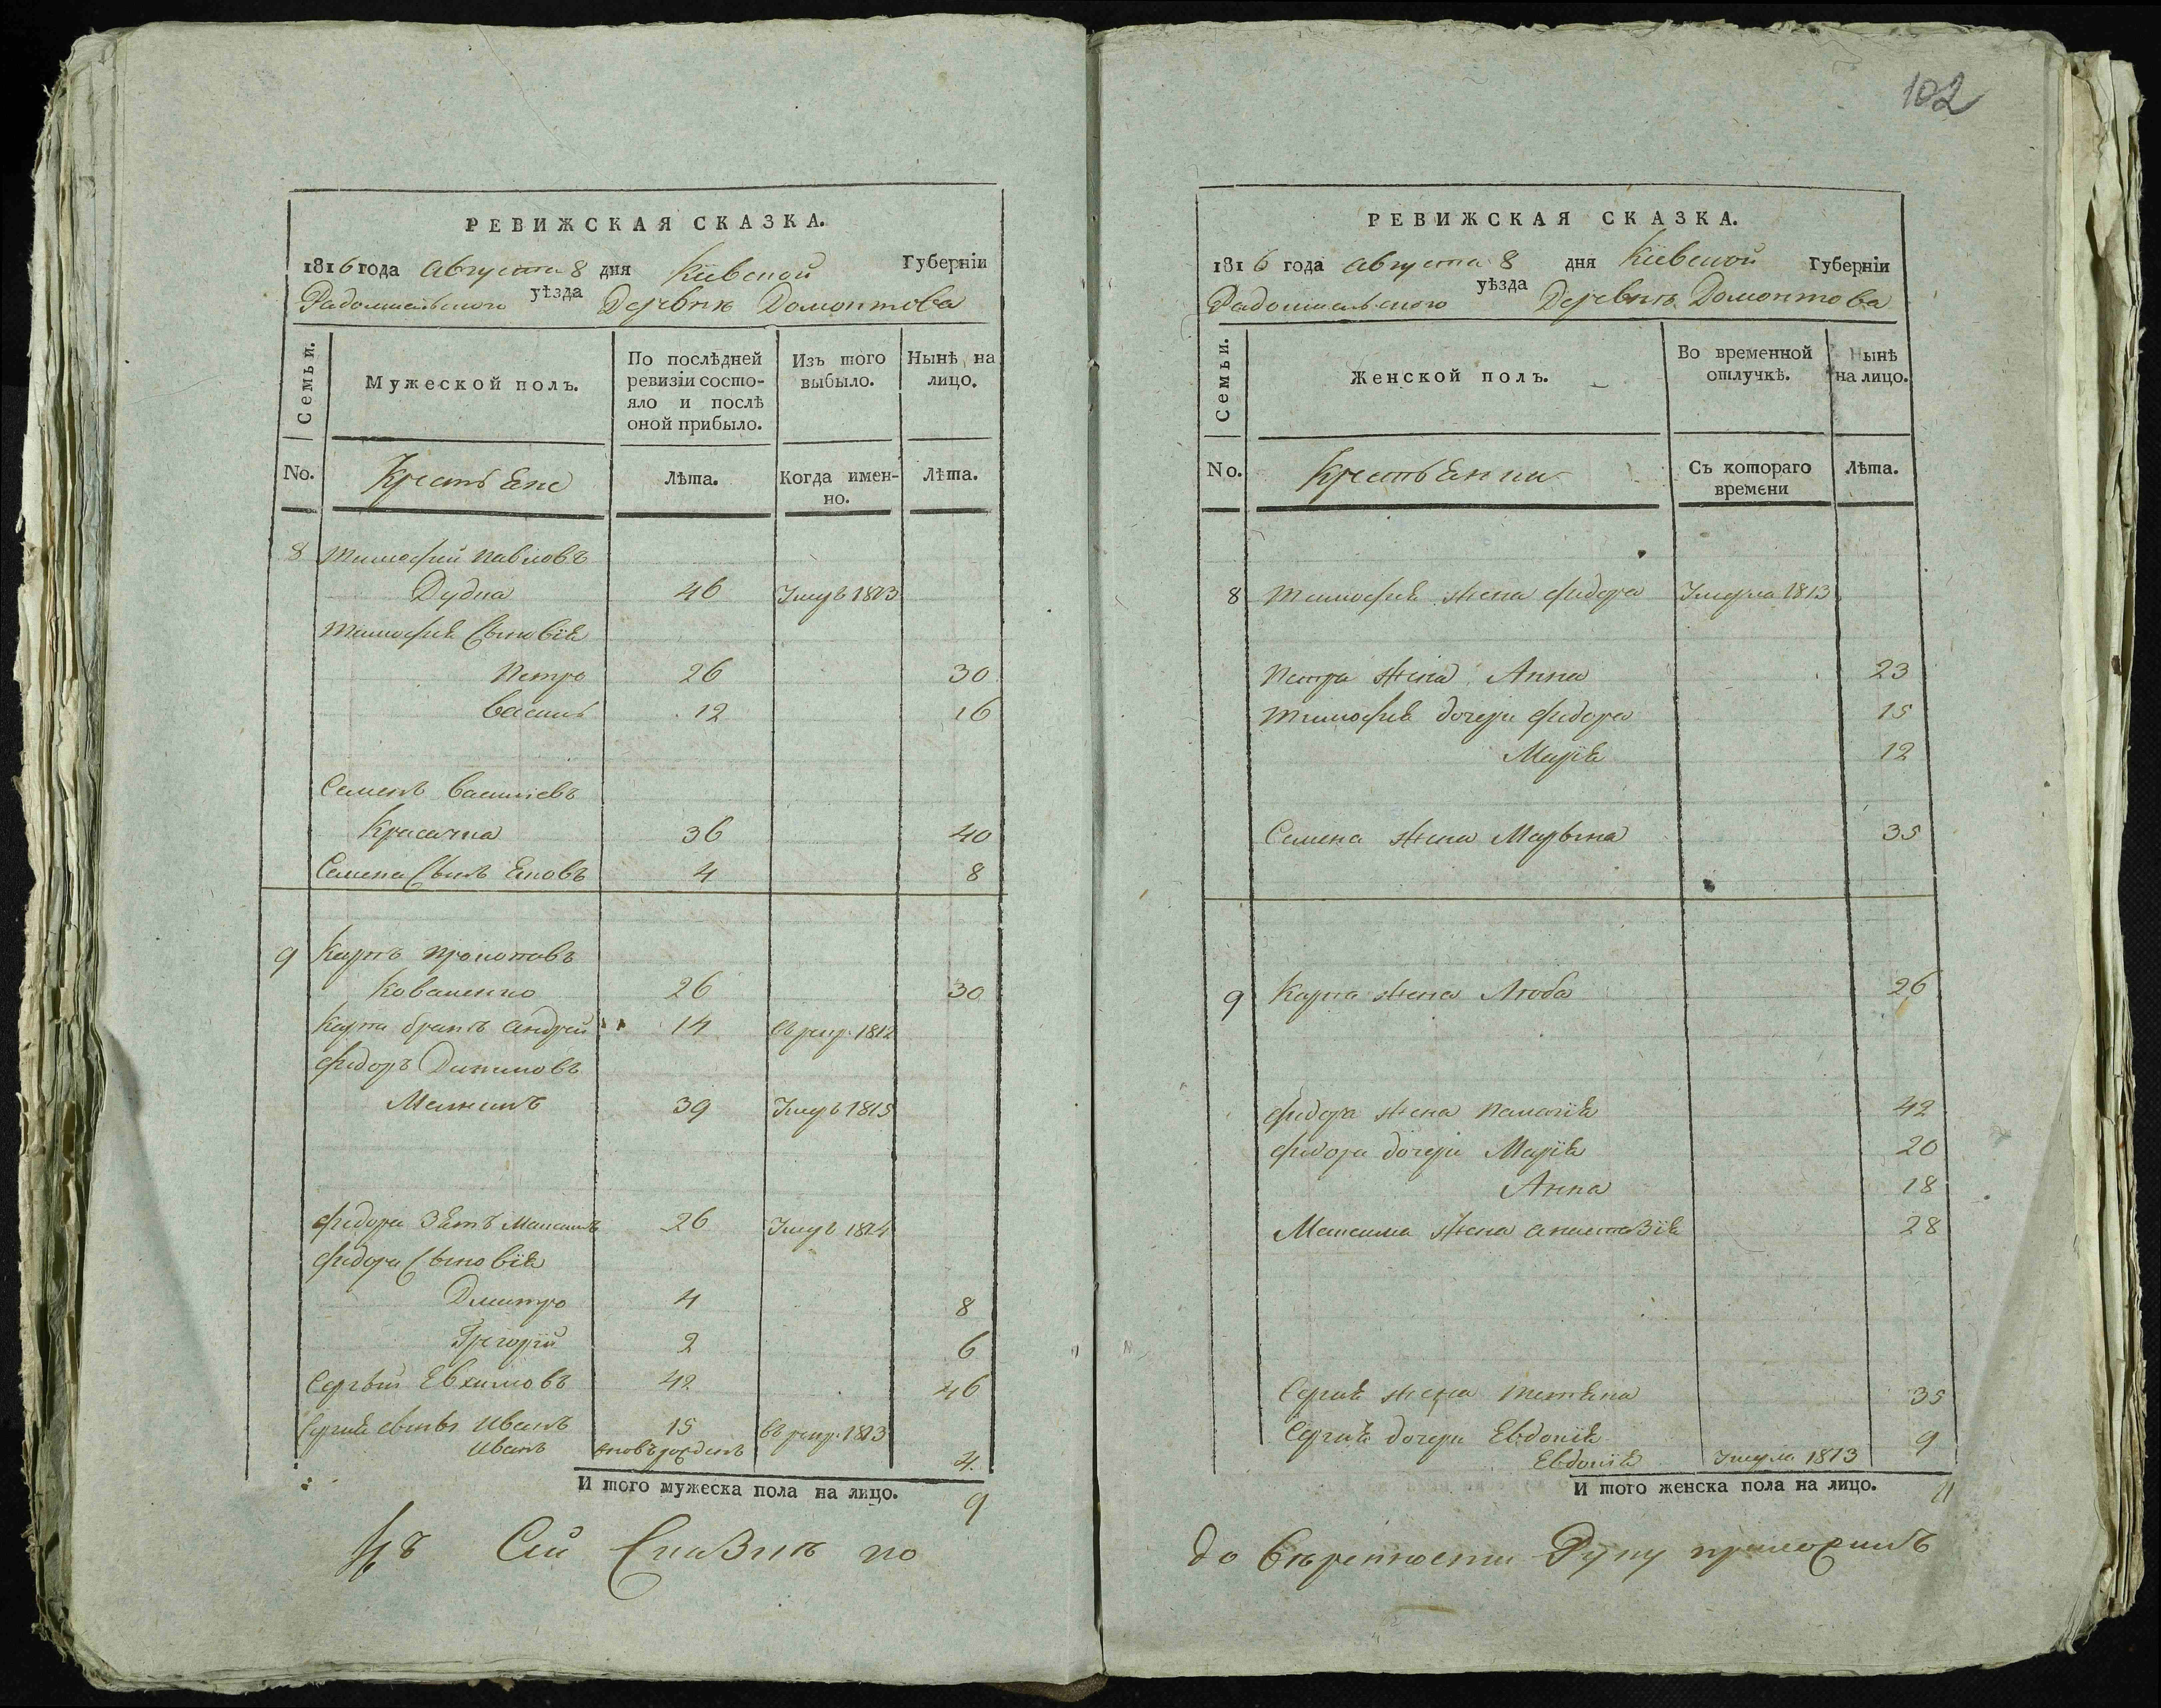 102
РЕВИЖСКАЯ СКАЗКА.
1816 года августа 8 дня Кіевской Губерніи
Радомысльского уѣзда Деревнѣ Домонтова
Семьи.
Мужеской полъ.
По послѣдней ревизіи состо-
яло и послѣ
оной прибыло.
Изъ того
выбыло.
Нынѣ на
лицо.
No.
Крестьяне
Лѣта.
Когда имен-
но.
Лѣта.
8 Тимофей Павловъ
Дудка 46 Умеръ 1813
Тимофея Сыновія
Петро 26 30
Василь 12 16
Семенъ Васильевъ
36 40
Семена Сынъ 4 8
9 Карпъ Прокоповъ
Коваленко 26 30
Карпа братъ Андрей 14 1812
Федоръ
39 Умеръ 1815
Федора Зять Максимъ 26 Умеръ 1814
Федора Сыновія
Дмитро 4 8
Григорій 2 6
Сергѣй Евхимовъ 42 46
Сергія сынъ Иванъ 15 1813
Иванъ новорожденъ 4
И того мужеска пола на лицо. 9
Къ Сей Сказкѣ по
РЕВИЖСКАЯ СКАЗКА.
1816 года августа 8 дня Кіевской Губерніи
Радомысльского уѣзда Деревнѣ Домонтова
Семьи.
Женской полъ.
Во временной
отлучкѣ.
Нынѣ
на лицо.
No.
Крестьянки
Съ котораго
времени
Лѣта.
8 Тимофея жена Федора Умерла 1813
Петра жена Анна 23
Тимофея дочери Федора 15
Марія 12
Семена жена Марьяна 35
9 Карпа жена Люба 26
Федора жена Палагія 42
Федора дочери Марія 20
Анна 18
Максима жена Анастазія 28
Сергія жена Тетяна 35
Сергія дочери Евдокія 9
Евдокія Умерла 1813
И того женска пола на лицо. 11
до вѣренности Руку приложилъ